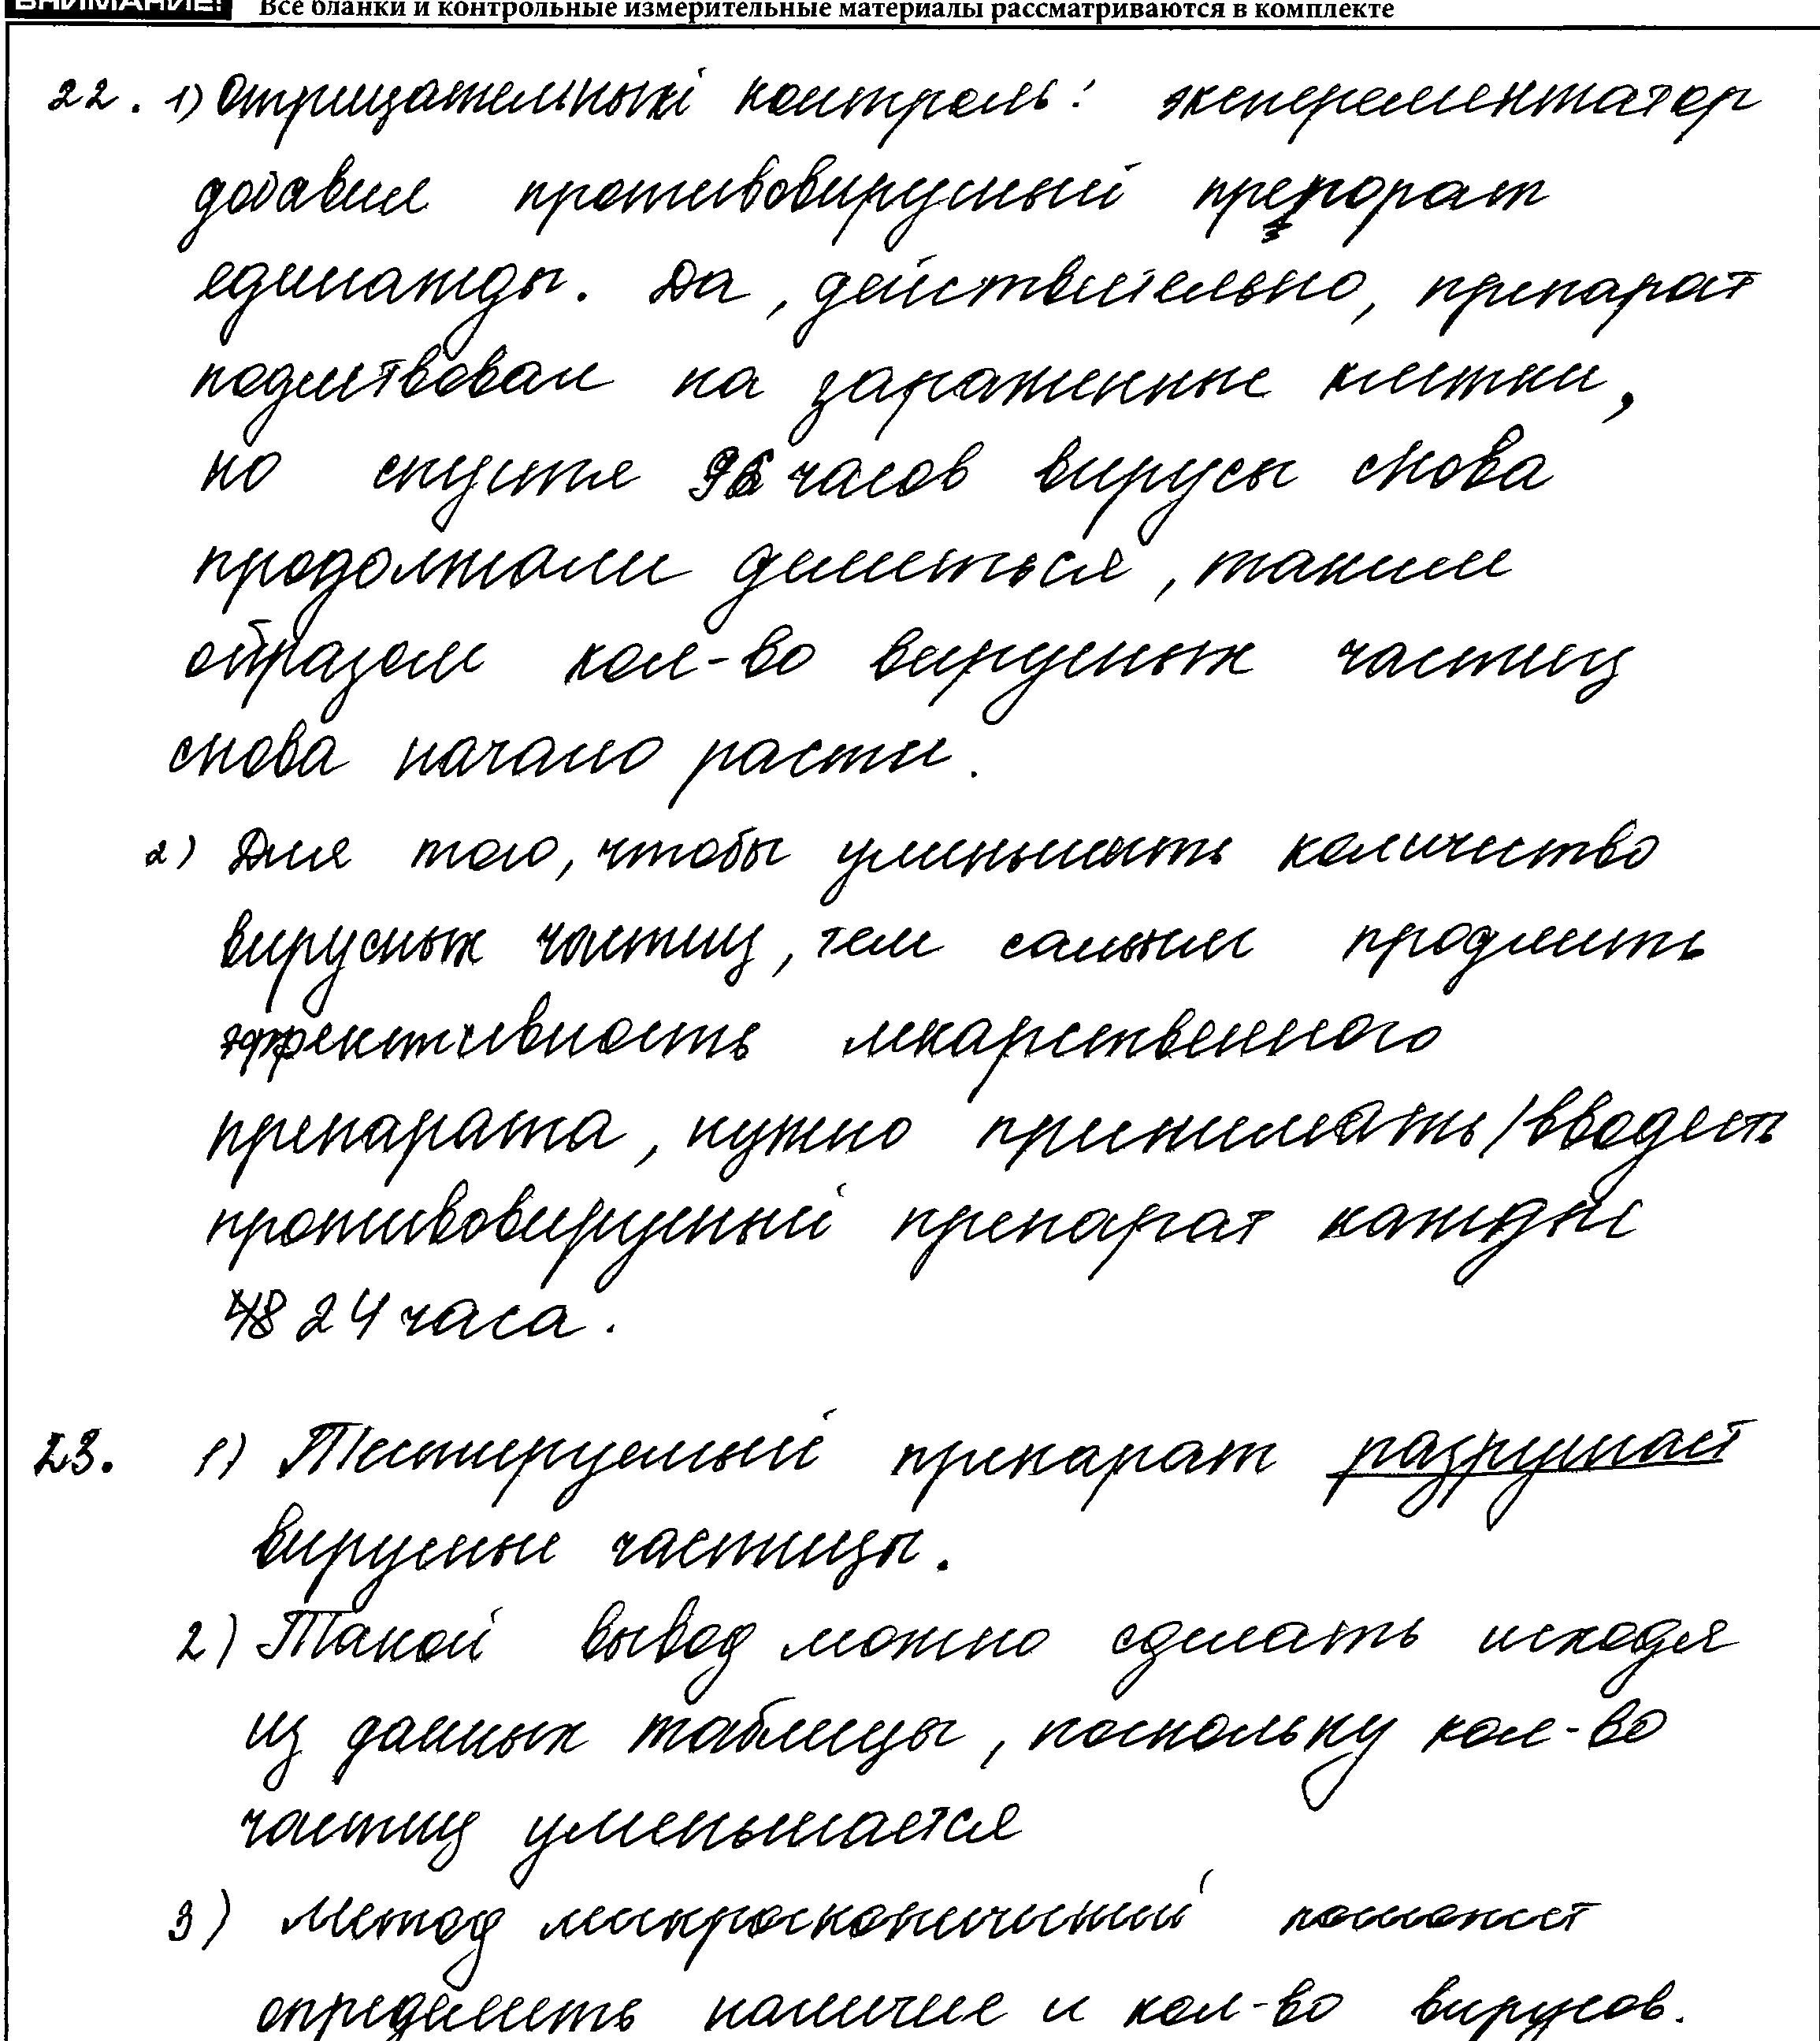 ВНИМАНИЕ! Все бланки и контрольные измерительные материалы рассматриваются в комплекте
22. 1) Отрицательный контроль: эксперементатор
добавил противовирусный препорат
единажды. Да, действительно, препарат
подействовал на зараженные клетки,
но спустя 96 часов вирусы снова
продолжали делиться, таким
образом кол-во вирусных частиц
снова начало расти.
2) Для того, чтобы уменьшить количество
вирусных частиц, тем самым продлить
эффективность лекарственного
препарата, нужно принимать/вводить
противовирусный препарат каждые
24 часа.
23. 1) Тестируемый препарат разрушает
вирусные частицы.
2) Такой вывод можно сделать исходя
из данных таблицы, поскольку кол-во
частиц уменьшается
3) Метод микроскопический поможет
определить наличие и кол-во вирусов.